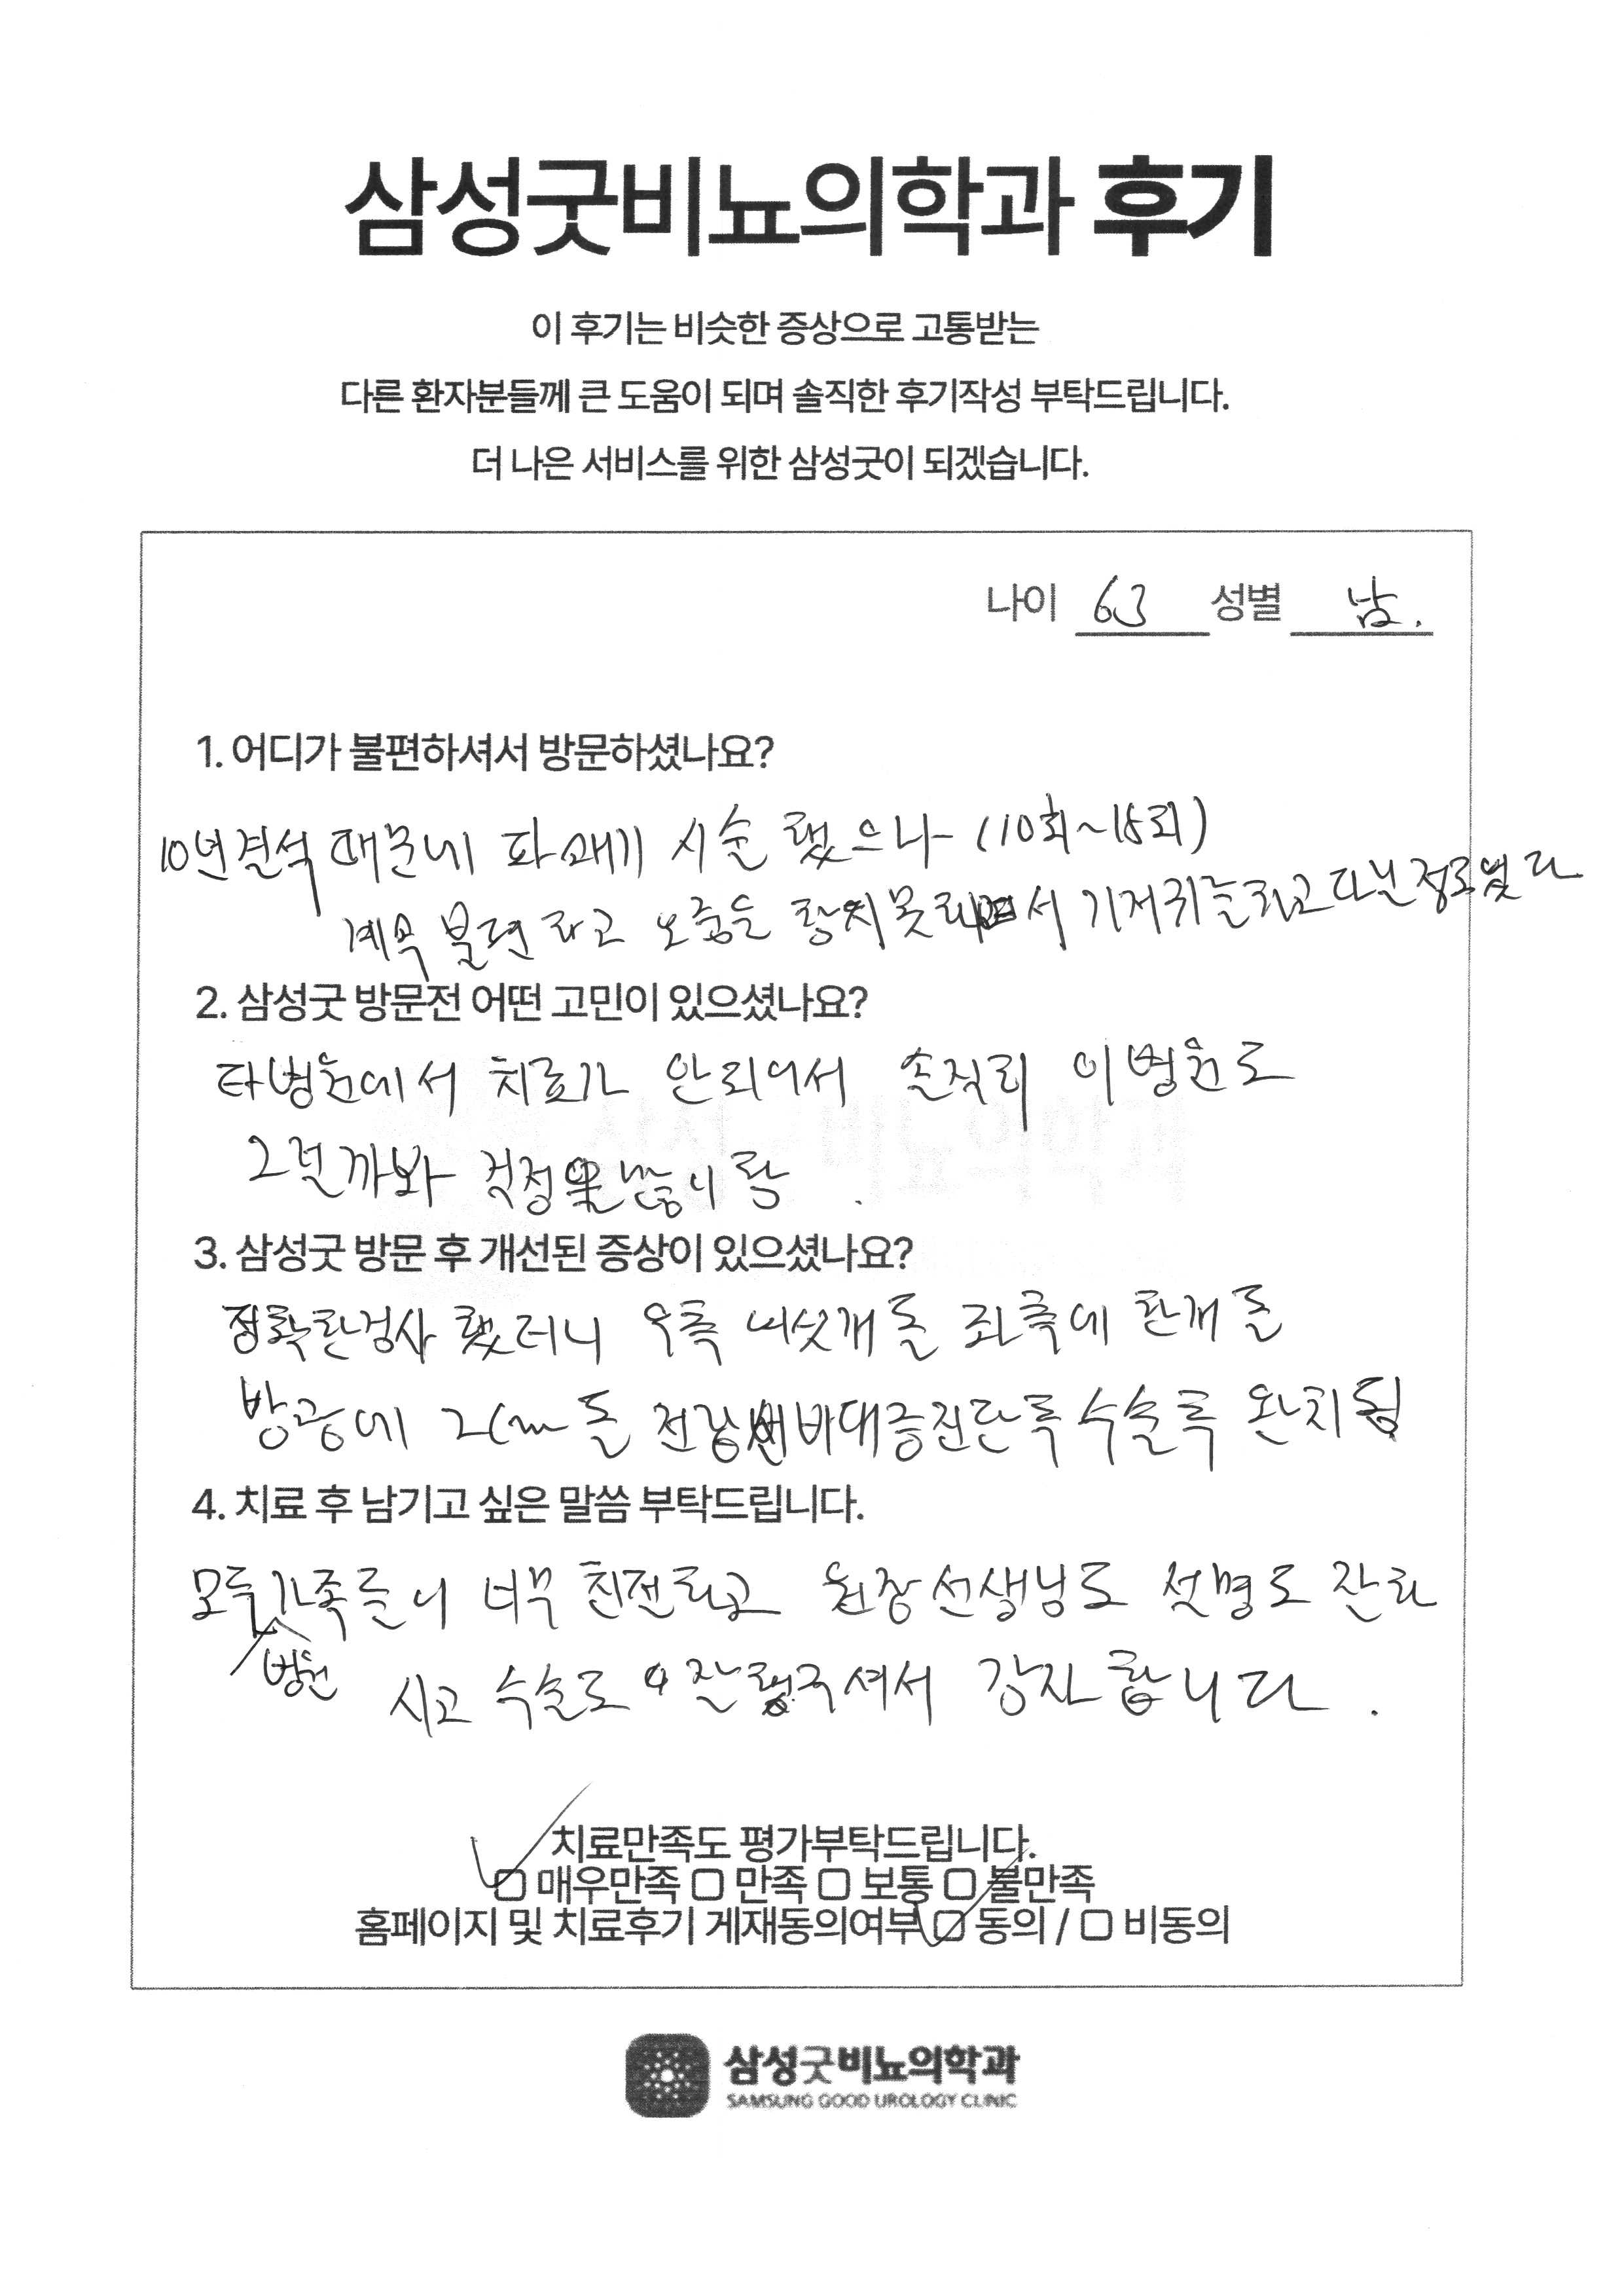 삼성굿비뇨의학과 후기
이 후기는 비슷한 증상으로 고통받는
다른 환자분들께 큰 도움이 되며 솔직한 후기작성 부탁드립니다.
더 나은 서비스를 위한 삼성굿이 되겠습니다.
나이 63 성별 남.
1. 어디가 불편하셔서 방문하셨나요?
10년결석 때문네 파쇄기 시술 했으나 (10회~15회)
계속 불편하고 오줌을 참지못해서 기저귀를하고다닐정도였다
2. 삼성굿 방문전 어떤 고민이 있으셨나요?
타병원에서 치료가 안되어서 솔직히 이병원도
그럴까봐 걱정
3. 삼성굿 방문 후 개선된 증상이 있으셨나요?
정확한검사 했더니 우측 여섯개 돌 좌측에 한개 돌
방광에 2cm 돌 전립선비대증진단후 수술후 완치됨
4. 치료 후 남기고 싶은 말씀 부탁드립니다.
모두 병원가족들이 너무 친절하고 원장선생님도 설명도 잘하
시고 수술도 잘해주셔서 감사합니다.
치료만족도 평가부탁드립니다.
□ 매우만족 □ 만족 □ 보통 □ 불만족
홈페이지 및 치료후기 게재동의여부 □ 동의 / □ 비동의
삼성굿비뇨의학과
SAMSUNG GOOD UROLOGY CLINIC